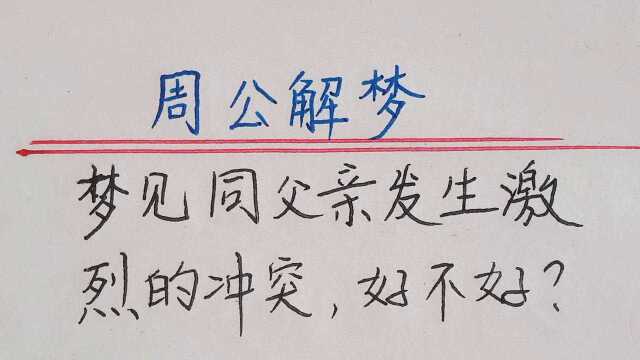 周公解梦
梦见同父亲发生激
烈的冲突，好不好？